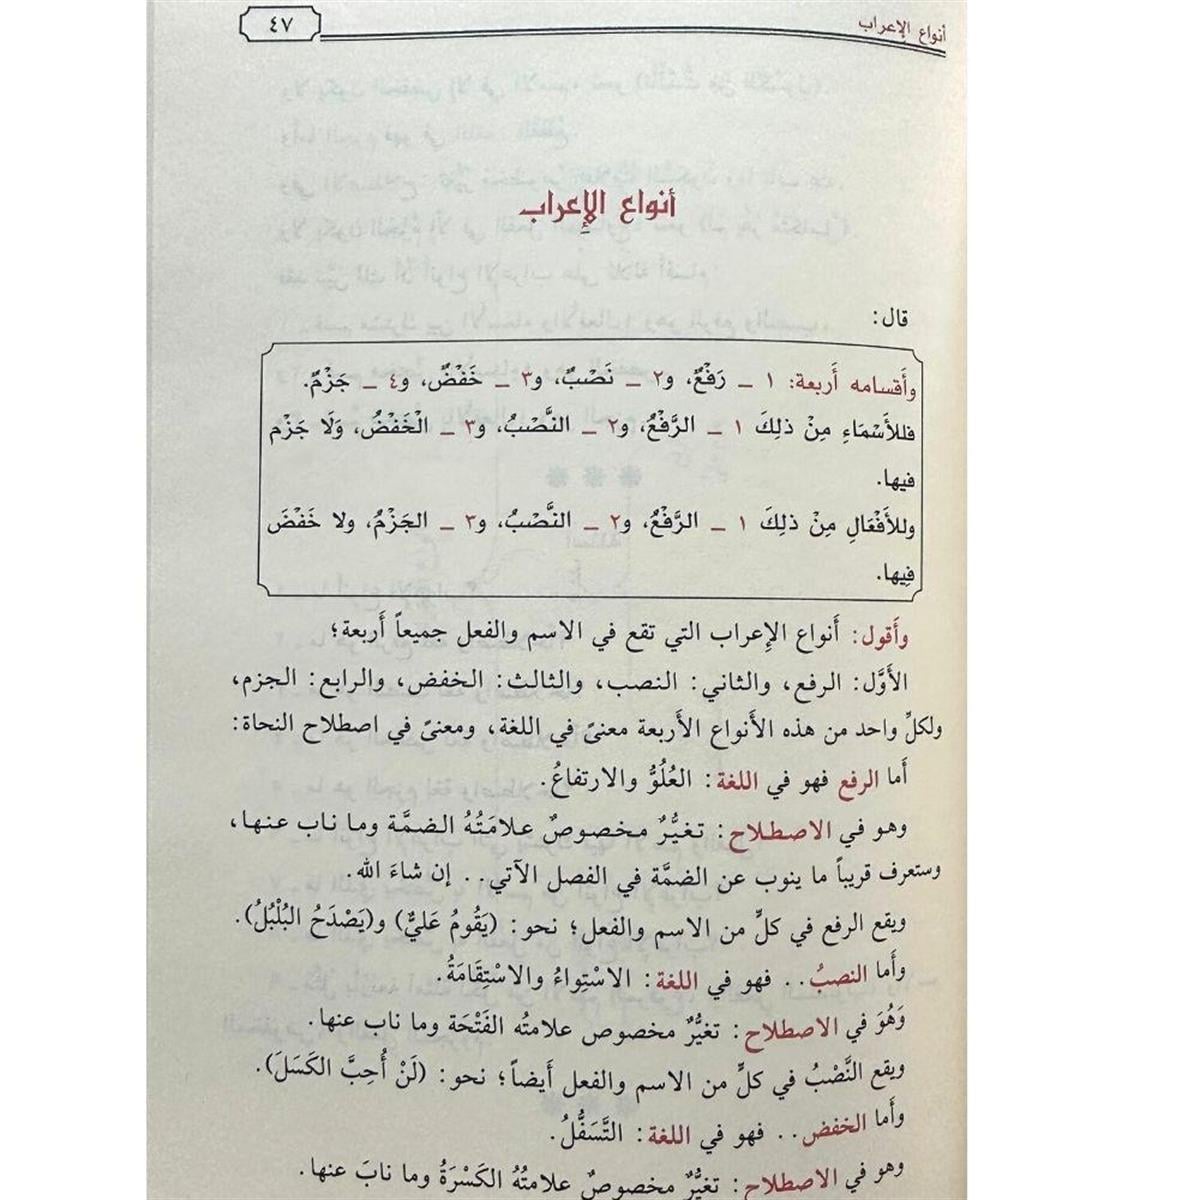 أنواع الإعراب
٤٧
أنواع الإعراب
قال:
وأَقسامه أَربعة: ١ ـ رَفْعٌ، و٢ ـ نَصْبٌ، و٣ ـ خَفْضٌ، و٤ ـ جَزْمٌ.
فللأَسْمَاءِ مِنْ ذلِكَ ١ ـ الرَّفْعُ، و٢ ـ النَّصْبُ، و٣ ـ الْخَفْضُ، وَلَا جَزْم
فيها.
وللأَفْعَالِ مِنْ ذلِكَ ١ ـ الرَّفْعُ، و٢ ـ النَّصْبُ، و٣ ـ الجَزْمُ، ولا خَفْضَ
فِيها.
وأَقول: أَنواع الإِعراب التي تقع في الاسم والفعل جميعاً أَربعة؛
الأَوَّل: الرفع، والثاني: النصب، والثالث: الخفض، والرابع: الجزم،
ولكلِّ واحد من هذه الأَنواع الأَربعة معنىً في اللغة، ومعنىً في اصطلاح النحاة:
أَما الرفع فهو في اللغة: العُلُوُّ والارتفاعُ.
وهو في الاصطلاح: تغيُّرٌ مخصوصٌ علامَتُهُ الضمَّة وما ناب عنها،
وستعرف قريباً ما ينوب عن الضمَّة في الفصل الآتي.. إن شاءَ الله.
ويقع الرفع في كلٍّ من الاسم والفعل؛ نحو: (يَقُومُ عَليٌّ) و(يَصْدَحُ البُلْبُلُ).
وأَما النصبُ.. فهو في اللغة: الاسْتِواءُ والاسْتِقَامَةُ.
وَهُوَ في الاصطلاح: تغيُّرٌ مخصوص علامتُه الفَتْحَة وما ناب عنها.
ويقع النَّصْبُ في كلٍّ من الاسم والفعل أَيضاً؛ نحو: (لَنْ أُحِبَّ الكَسَلَ).
وأَما الخفض.. فهو في اللغة: التَّسَفُّلُ.
وهو في الاصطلاح: تغيُّرٌ مخصوصٌ علامتُهُ الكَسْرَةُ وما نابَ عنها.